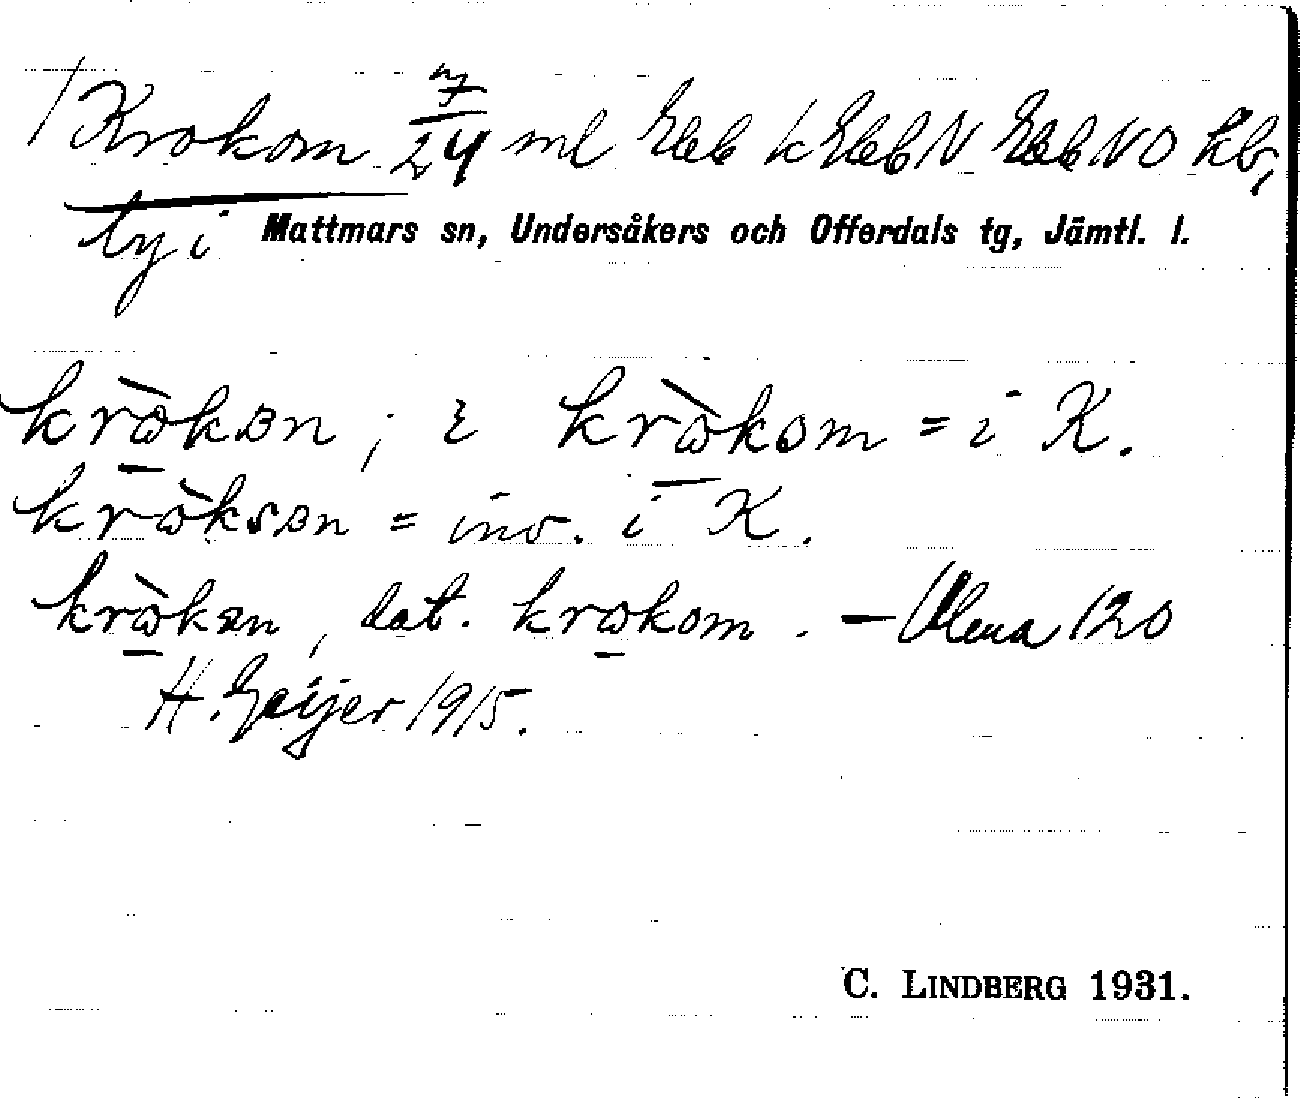 Krokom 7/24 ml Ebb k Ebb N Ebb NO kb,
ty i Mattmars sn, Undersåkers och Offerdals tg, Jämtl. l.
kròkən; i kròkom = i K.
kròksən = inv. i K.
kròkən, dat. krokom. — Ulena 120
H. Geijer 1915.
C. LINDBERG 1931.